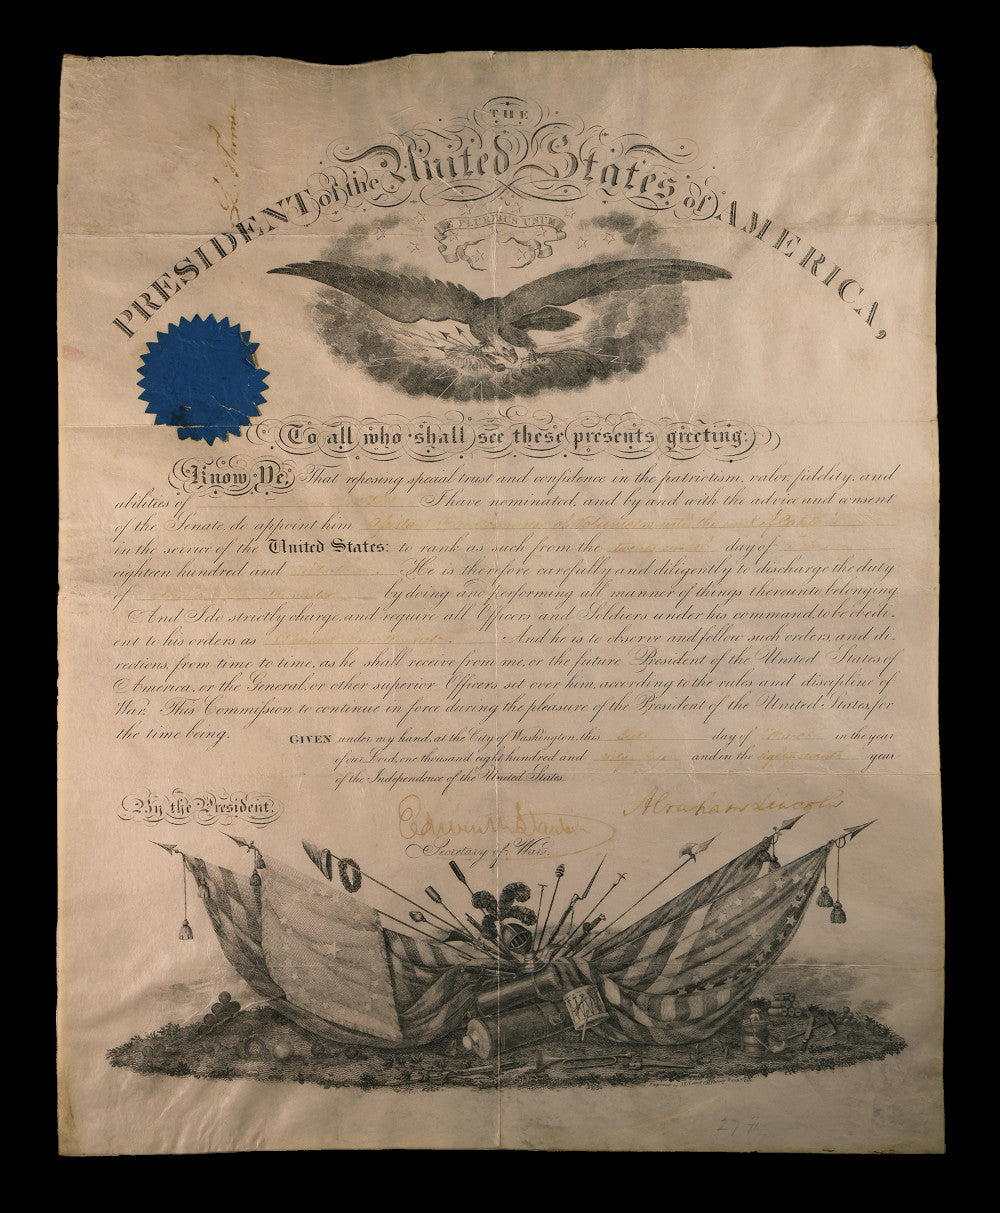 THE
PRESIDENT of the United States of AMERICA,
E PLURIBUS UNUM
To all who shall see these presents greeting:
Know Ye, That reposing special trust and confidence in the patriotism, valor, fidelity, and
abilities of I have nominated, and by and with the advice and consent
of the Senate, do appoint him of Volunteers with the rank of Captain
in the service of the United States: to rank as such from the day of
eighteen hundred and He is therefore carefully and diligently to discharge the duty
of by doing and performing all manner of things thereunto belonging.
And I do strictly charge, and require all Officers and Soldiers under his command, to be obedi-
ent to his orders as And he is to observe and follow such orders, and di-
rections, from time to time, as he shall receive from me, or the future President of the United States of
America, or the General, or other superior Officers set over him, according to the rules and discipline of
War. This Commission to continue in force during the pleasure of the President of the United States, for
the time being.
GIVEN under my hand, at the City of Washington, this day of March in the year
of our Lord, one thousand eight hundred and and in the eighty seventh year
of the Independence of the United States.
By the President.
Abraham Lincoln
Edwin M Stanton
Secretary of War.
277